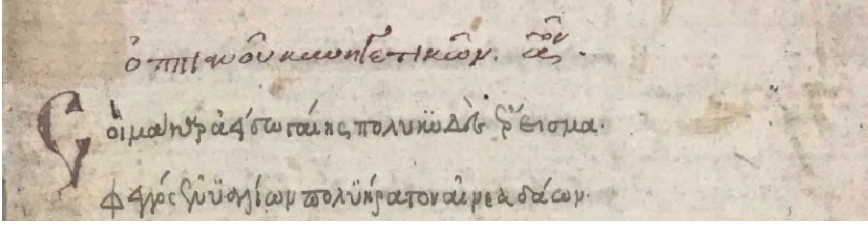 ὀππιανοῦ κυνηγετικῶν. αον.
Σοὶ μάκαρ ἀείδω γαίης πολυκϋδὲς ἔρεισμα.
φέγγος ἐνϋαλίων πολϋήρατον αἰνεαδάων.